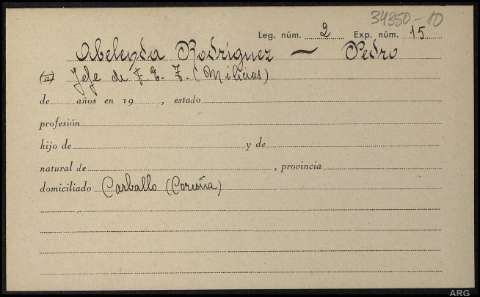 34350-10
Leg. núm. 2 Exp. núm. 15
Abeleyda Rodríguez — Pedro
Jefe de F. E. T. (Milicias)
de años en 19 , estado
profesión
hijo de y de
natural de , provincia
domiciliado Carballo (Coruña)
ARG